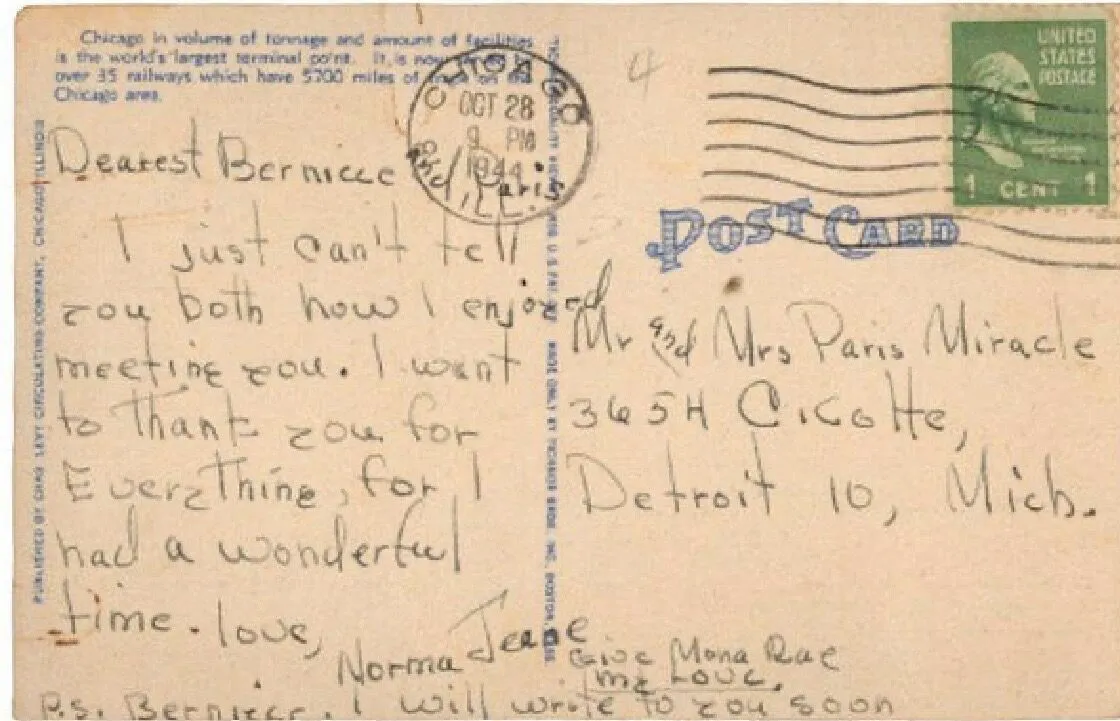 Chicago in volume of tonnage and amount of facilities
is the world's largest terminal point. It is now
over 35 railways which have 5700 miles of
Chicago area.
CHICAGO
OCT 28
9 PM
1944
ILL.
UNITED
STATES
POSTAGE
1 CENT 1
4
POST CARD
PUBLISHED BY CHAS. LEVY CIRCULATING COMPANY, CHICAGO, ILLINOIS
Dearest Berniece
and Paris
I just can't tell
you both how I enjoyed
meeting you. I want
to thank you for
Everything, for I
had a wonderful
time. love,
Norma Jeane
P.S. Berniece. I will write to you soon
Give Mona Rae
my Love.
Mr and Mrs Paris Miracle
3654 Cicotte,
Detroit 10, Mich.